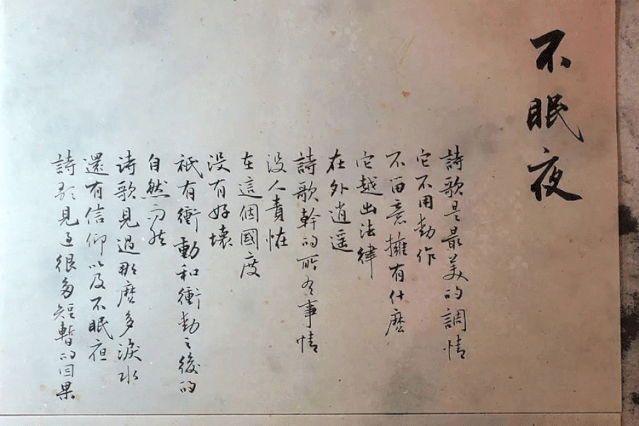 不眠夜
詩歌是最美的調情
它不用動作
不留意擁有什麼
它越出法律
在外逍遥
詩歌幹的所有事情
没人責怪
在這個國度
没有好壞
祇有衝動和衝動之後的
自然而然
诗歌見過那麼多淚水
還有信仰以及不眠夜
詩歌見過很多短暫的因果